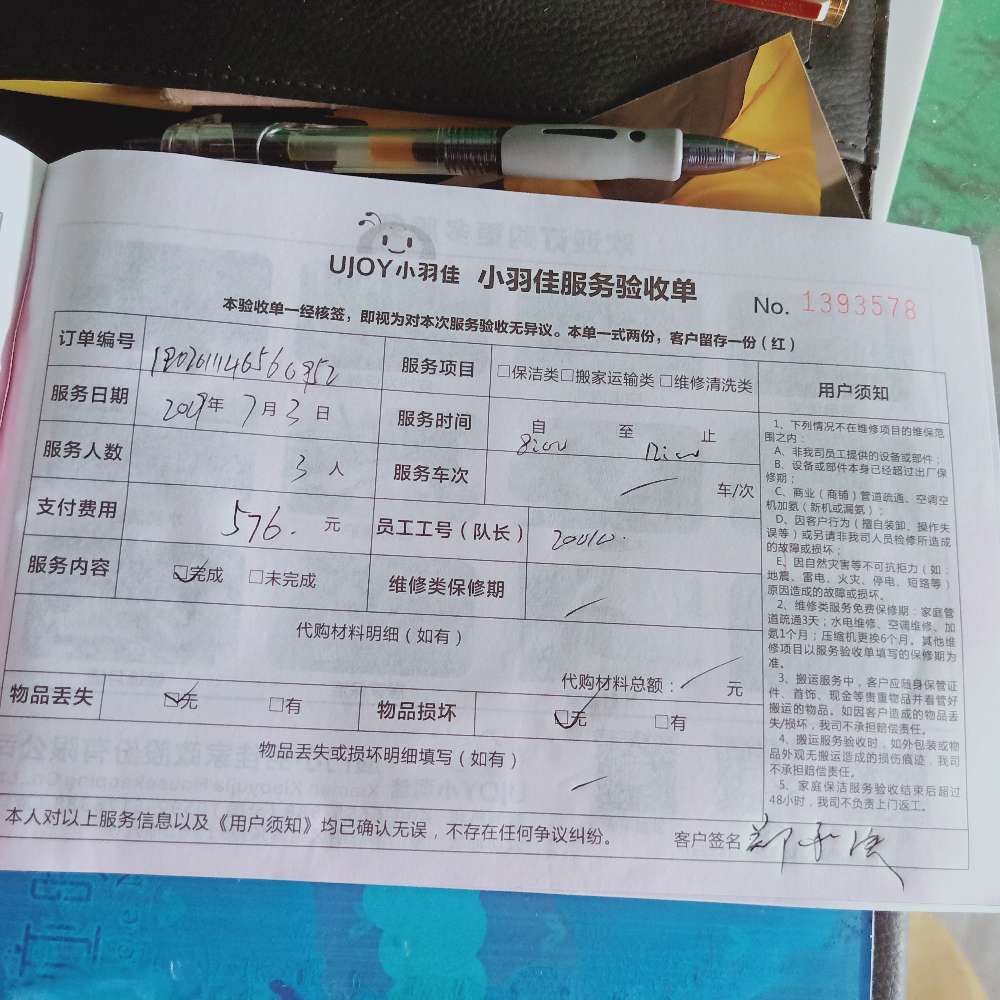 UJOY小羽佳 小羽佳服务验收单
No. 1393578
本验收单一经核签，即视为对本次服务验收无异议。本单一式两份，客户留存一份（红）
订单编号
服务项目 □保洁类□搬家运输类 □维修清洗类
服务日期 2019年 7月3日
服务时间 自 至 止
服务人数 3人
服务车次 / 车/次
支付费用 576. 元
员工工号（队长）
服务内容 ☑完成 □未完成
维修类保修期 /
代购材料明细（如有）
代购材料总额：/ 元
物品丢失 ☑无 □有
物品损坏 ☑无 □有
物品丢失或损坏明细填写（如有）
/
本人对以上服务信息以及《用户须知》均已确认无误，不存在任何争议纠纷。
客户签名
用户须知
1、下列情况不在维修项目的维保范
围之内：
A、非我司员工提供的设备或部件；
B、设备或部件本身已经超过出厂保
修期；
C、商业（商铺）管道疏通、空调空
机加氨（新机或漏氨）；
D、因客户行为（擅自装卸、操作失
误等）或另请非我司人员检修所造成
的故障或损坏；
E、因自然灾害等不可抗拒力（如：
地震、雷电、火灾、停电、短路等）
原因造成的故障或损坏。
2、维修类服务免费保修期：家庭管
道疏通3天；水电维修、空调维修、加
氨1个月；压缩机更换6个月。其他维
修项目以服务验收单填写的保修期为
准。
3、搬运服务中，客户应随身保管证
件、首饰、现金等贵重物品并看管好
搬运的物品。如因客户造成的物品丢
失/损坏，我司不承担赔偿责任。
4、搬运服务验收时，如外包装或物
品外观无搬运造成的损伤痕迹，我司
不承担赔偿责任。
5、家庭保洁服务验收结束后超过
48小时，我司不负责上门返工。